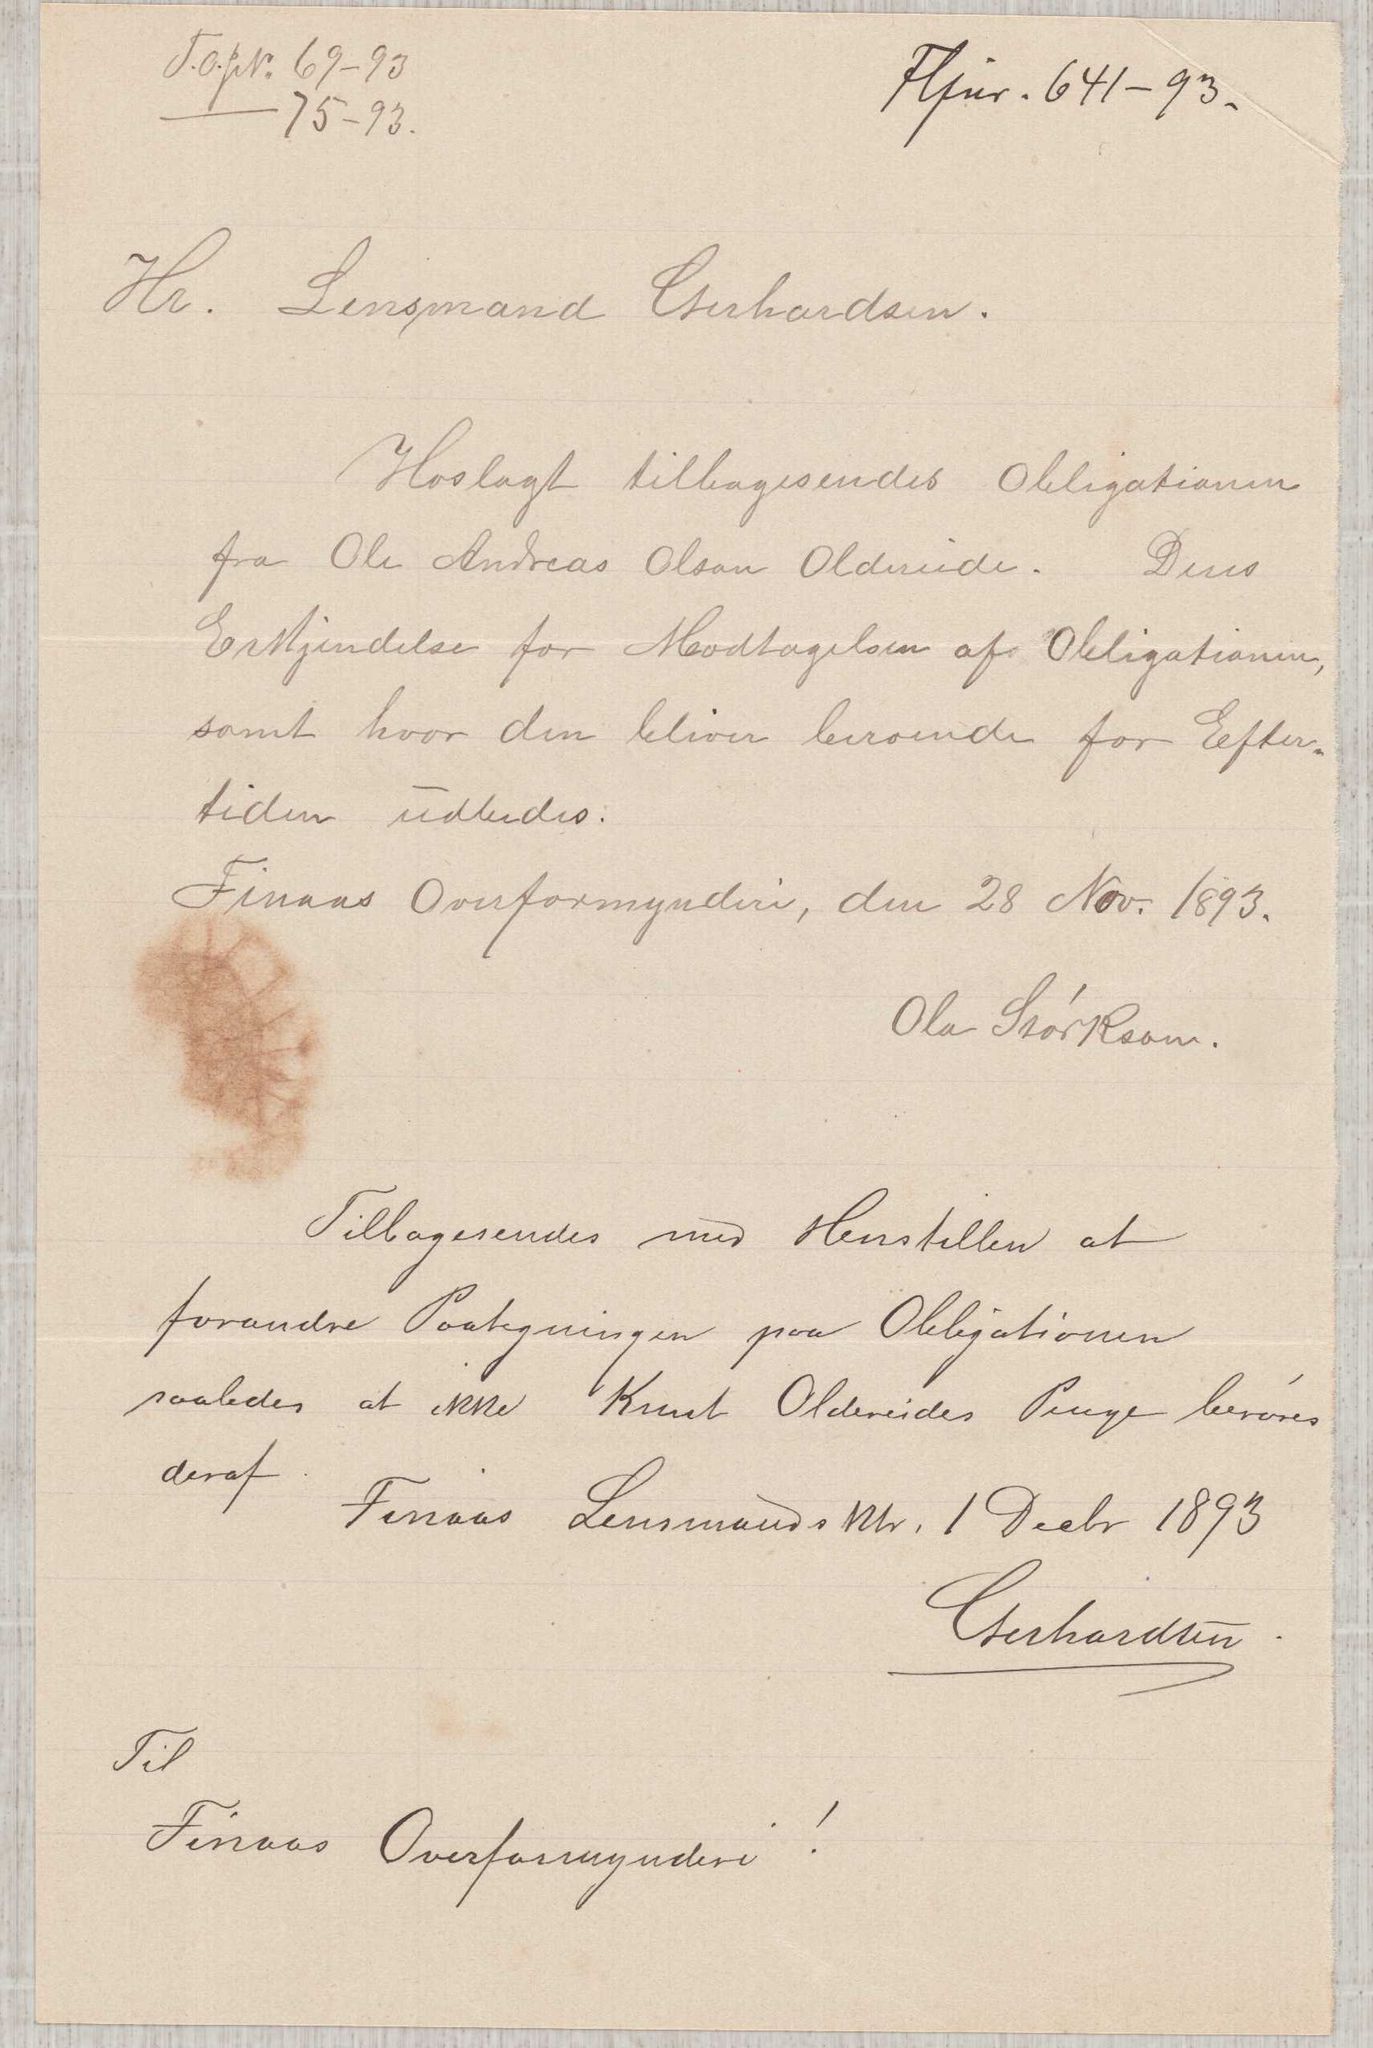 F.O.jr.No. 69-93
75-93.
Fljnr. 641-93.
Hr. Lensmand Gerhardsen.
Hoslagt tilbagesendes Obligationen
fra Ole Andreas Olson Oldereide. Deres
Erkjendelse for Modtagelsen af Obligationen,
samt hvor den bliver beroende for Efter-
tiden udbedes.
Finaas Overformynderi, den 28 Nov. 1893.
Ola Størkson.
Tilbagesendes med Henstillen at
forandre Paategningen paa Obligationen
saaledes at ikke Knut Oldereides Penge berøres
deraf.
Finaas Lensmandsktr. 1 Decbr 1893
Gerhardsen.
Til
Finaas Overformynderi!